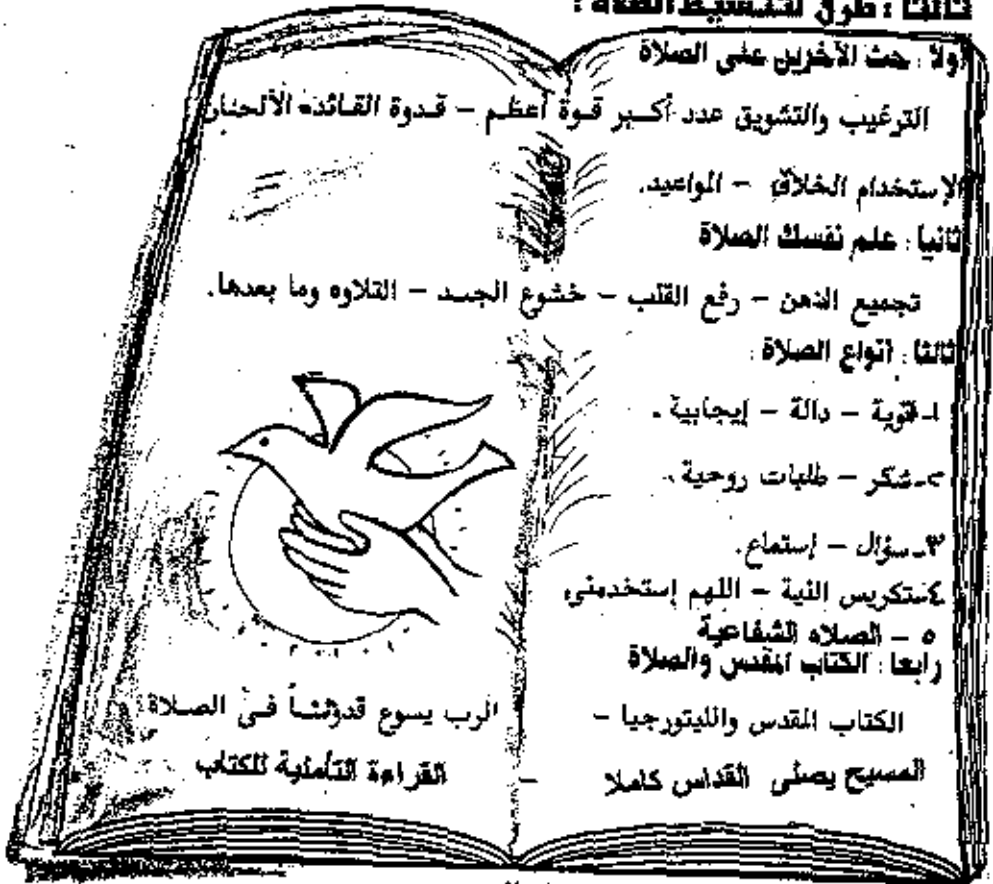 ثالثا : طرق لتنشيط الصلاة :
أولا : حث الآخرين على الصلاة
الترغيب والتشويق عدد أكبر قوة أعظم – قدوة القائد، الألحان
الإستخدام الخلاق – المواعيد.
ثانيا : علم نفسك الصلاة
تجميع الذهن – رفع القلب – خشوع الجسد – التلاوه وما بعدها.
ثالثا : أنواع الصلاة :
١ـ قوية – دالة – إيجابية .
٢ـ شكر – طلبات روحية .
٣ـ سؤال – إستماع.
٤ـ تكريس النية – اللهم إستخدمنى
٥ – الصلاه الشفاعية
رابعا : الكتاب المقدس والصلاة
الكتاب المقدس والليتورجيا – الرب يسوع قدوتنا فى الصلاة
المسيح يصلى القداس كاملا – القراءة التأملية للكتاب